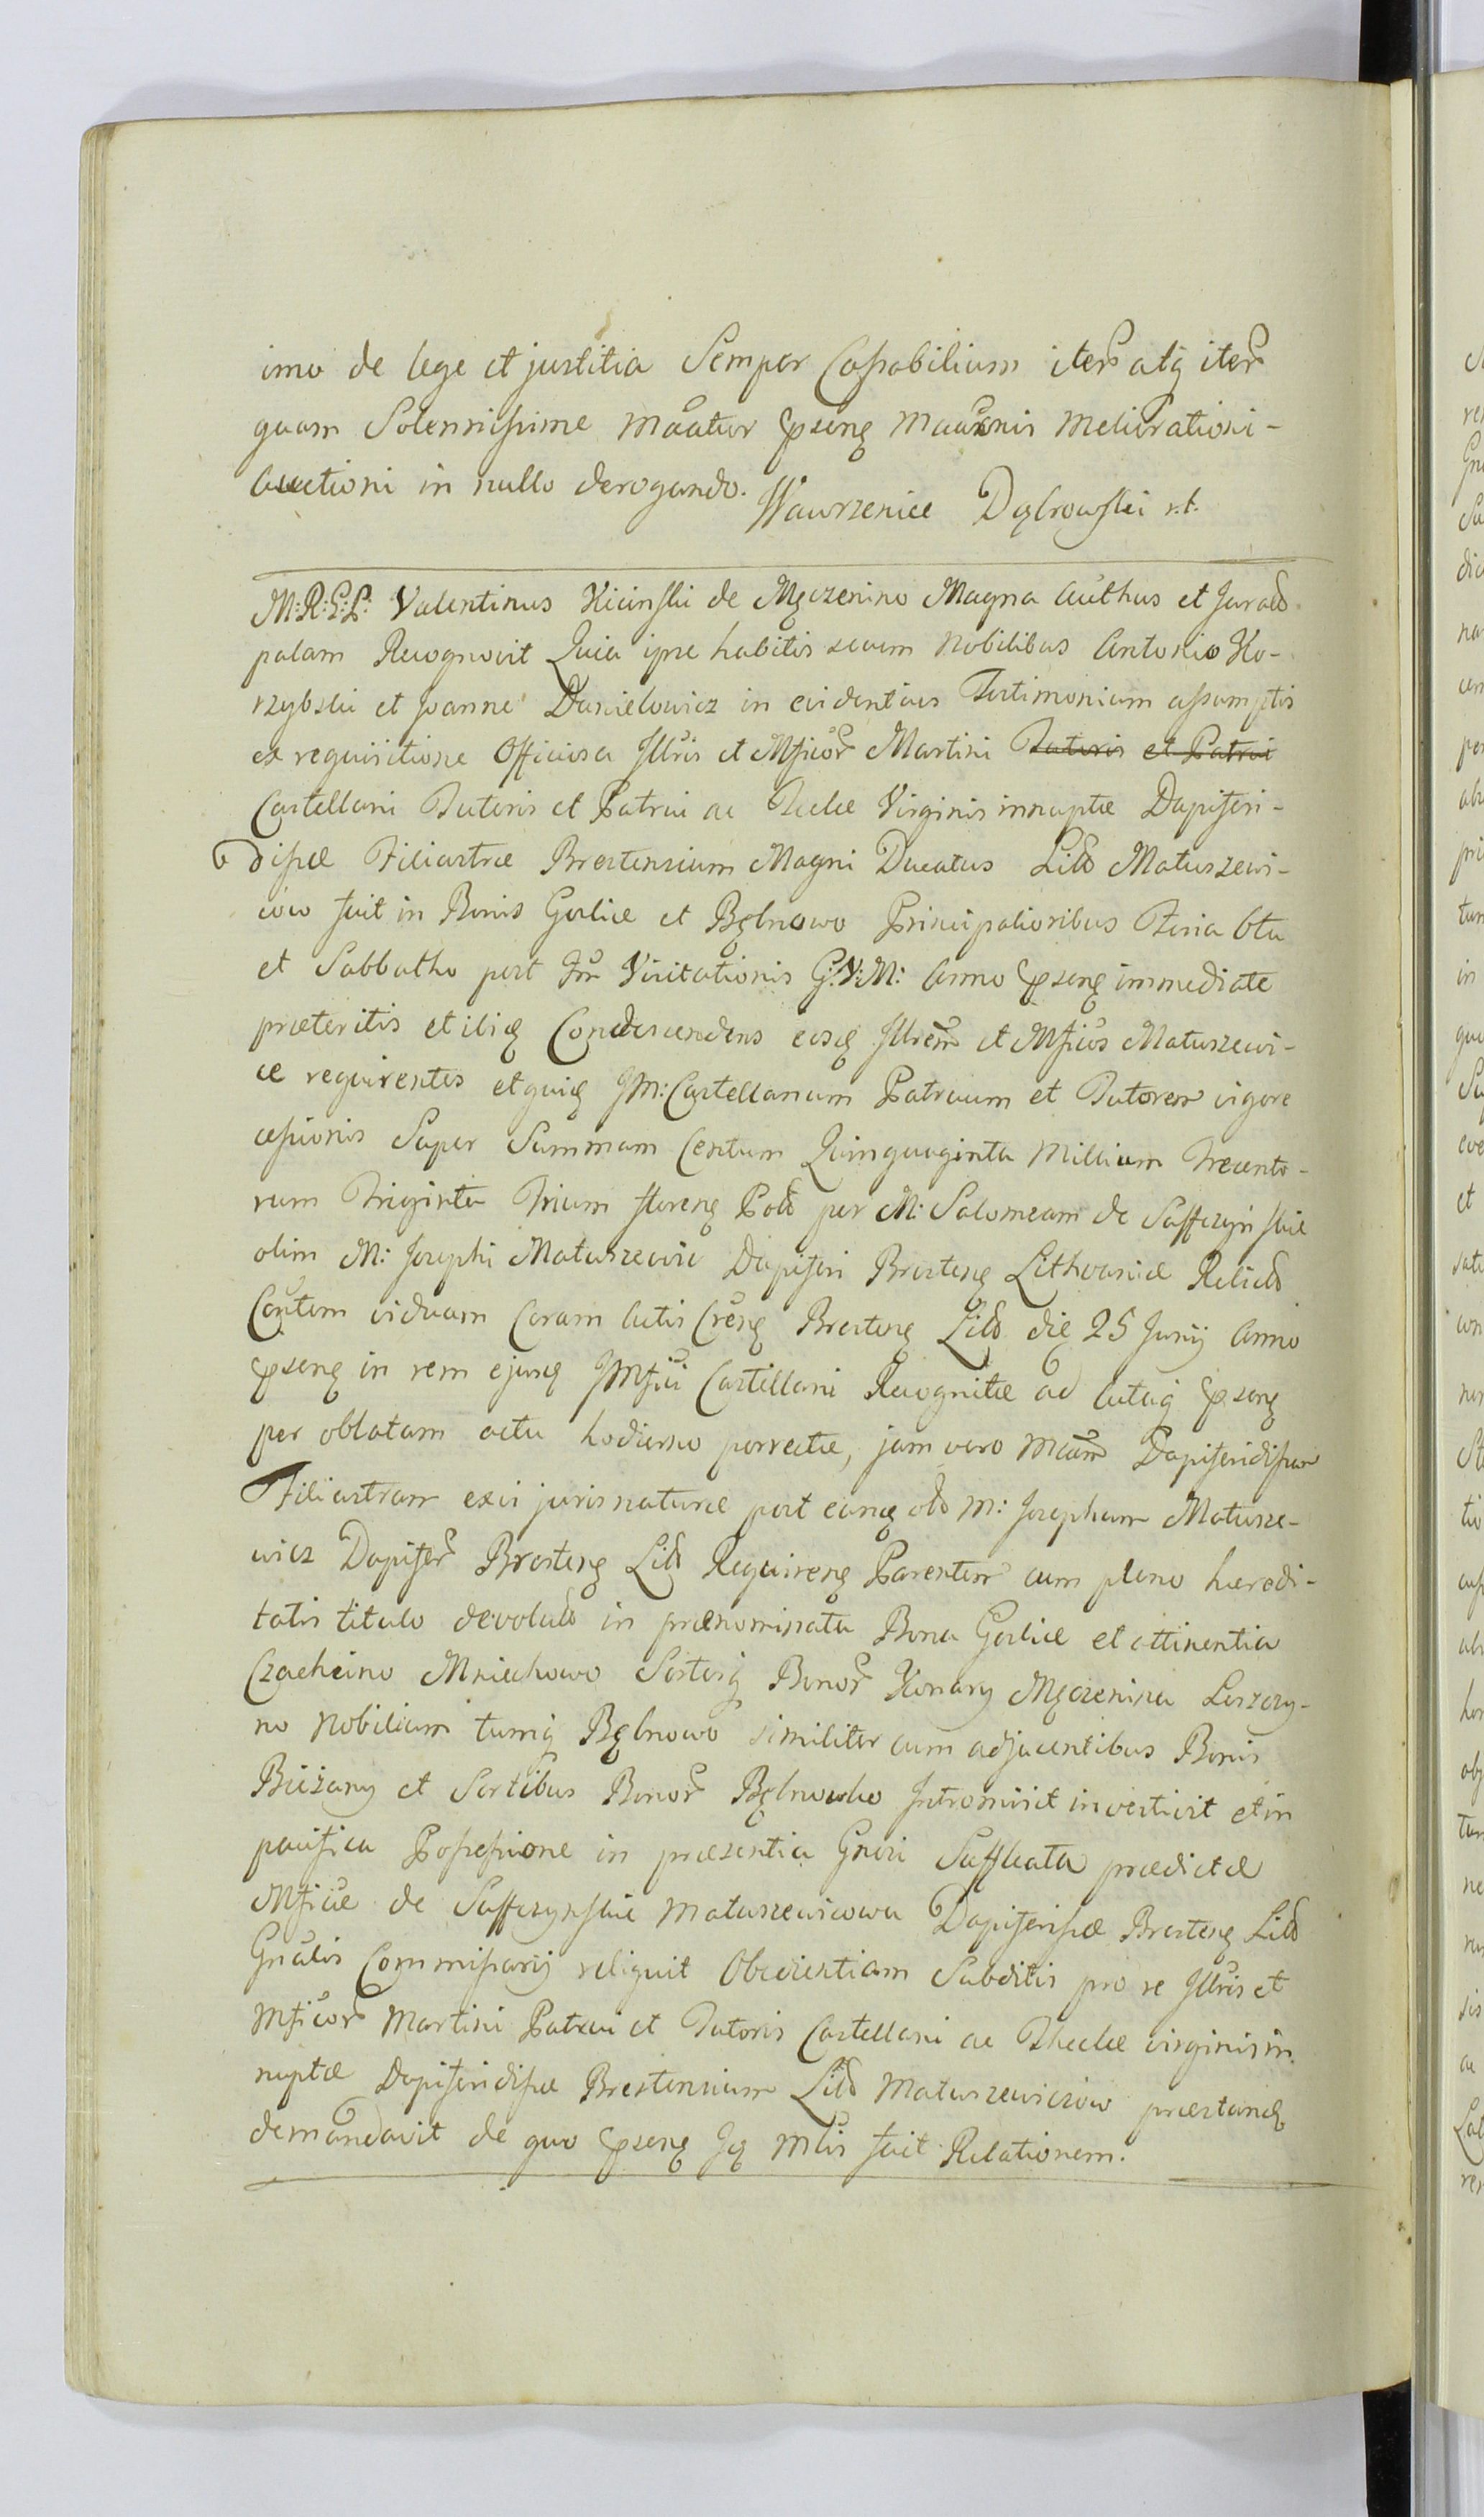 imo de lege et justitia Semper Cassabilium iter atq iter
quam Solennissime maatur pseng maaonis meliorationi-
auctioni in nullo derogando. Wawrzeniec Dąbrowski
M: R: G: P: Valentinus Kicinski de Męczenino Magna authus et Jurad
palam Recognovit Quia ipse habitis secum Nobilibus Antonio Ko-
rzybski et Joanne Danielowicz in evidentius Testimonium assumptis
ex requisitione Officiosa Illris et Mficor Martini Tutoris et Patrui
Castellani Tutoris et Patrui ac Teclæ Virginis innuptæ Dapiferi-
dissæ Filiastræ Brestensium Magni Ducatus Litt Matuszewi-
cow fuit in Bonis Goslice et Bęlnowo Principalioribus Feria 6ta
et Sabbatho post Visitationis G: V: M: anno pseng immediate
præteritis et ibiq Condescendens eosq Illrem et Mficos Matuszewi-
ce requirentes et quiq JM: Castellanum Patruum et Tutorem vigore
cessionis Super Summam Centum Quinquaginta Millium Trecento-
rum Triginta Trium floreng Pold per M: Salomeam de Suffczynskie
olim M: Josephi Matuszewic Dapiferi Bresteng Lithvaniæ Relictd
viduam Coram actis Breseng Litt die 25 Junij Anno
pseng in rem ejusq JMfici Castellani Recognitæ ad actaq pseng
per oblatam actu hodierno porrectæ, jam vero Dapiferidissam
Filiastram exvi juris naturæ post eanq M: Josephum Matusze-
wicz Dapifer Bresteng Litt Requireng Parentem cum pleno hæredi-
tatis titulo devolutd in prænominata Bona Goslice et attinentia
Czachcino Mniechowo Sortesq Bonor Konary Męczenina Leszczy-
no Nobilium tumq Bęlnowo similiter cum adjacentibus Bonis
Bieżany et Sortibus Bonor Intromisit investivit et in
pacifica Possessione in præsentia Gnosi Suffleata prædictæ
Mficæ de Suffczynskie Matuszewicowa Dapiferissæ Bresteng Litt
Gnalis Commissarij reliquit Obedientiam Subditis pro re Illris et
Mficor Martini Patrui et Tutoris Castellani ac Theclæ virginis in
nuptæ Dapiferidissæ Brestensium Litt Matuszewiczow præstandq
demandavit de quo pseng Jq fuit Relationem.